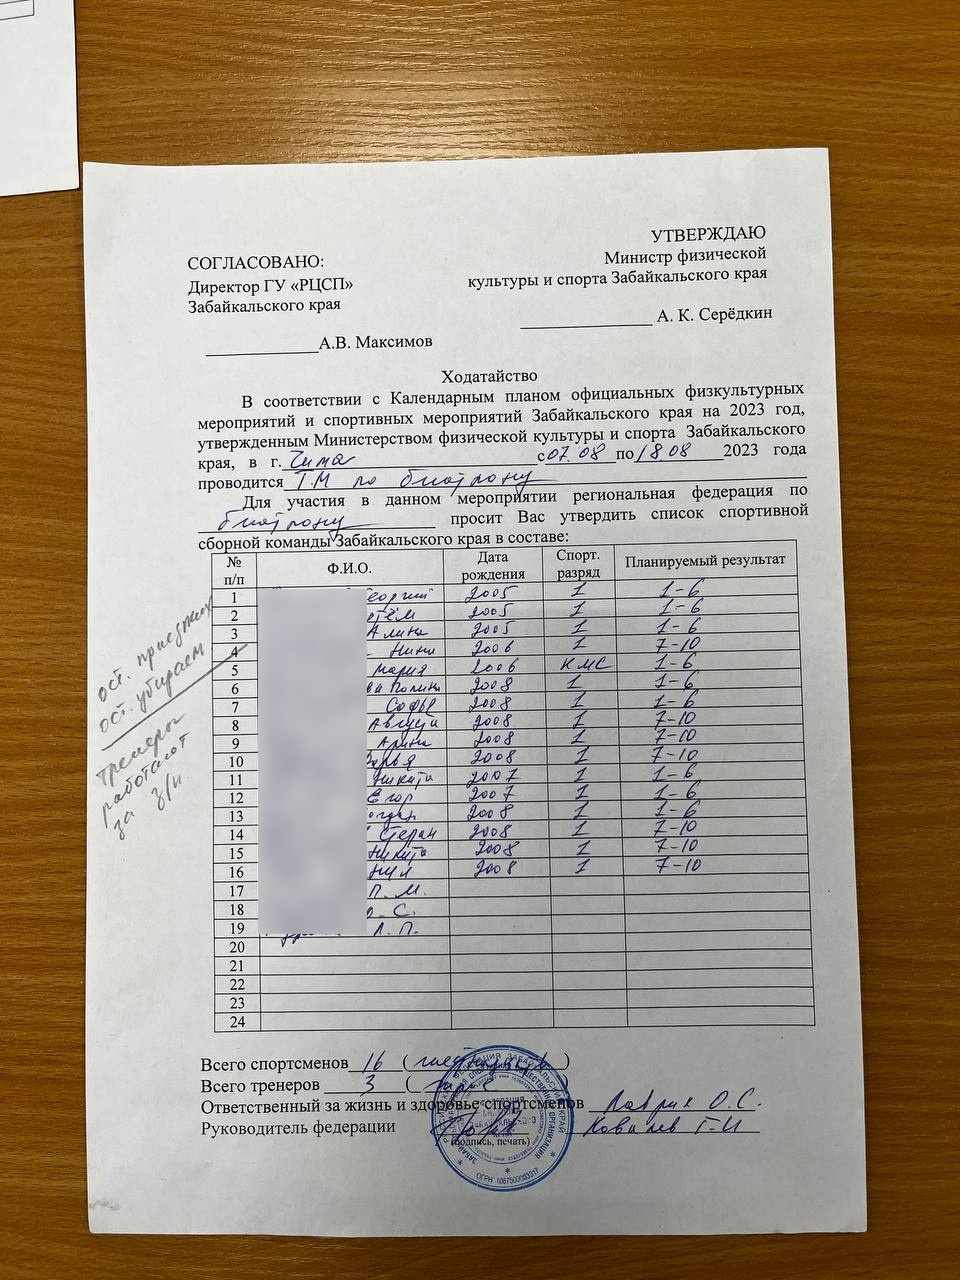 УТВЕРЖДАЮ
Министр физической
культуры и спорта Забайкальского края
____________ А. К. Серёдкин
СОГЛАСОВАНО:
Директор ГУ «РЦСП»
Забайкальского края
____________А.В. Максимов
Ходатайство
В соответствии с Календарным планом официальных физкультурных
мероприятий и спортивных мероприятий Забайкальского края на 2023 год,
утвержденным Министерством физической культуры и спорта Забайкальского
края, в г. Чита с 07.08 по 18.08 2023 года
проводится Т.М по биатлону
Для участия в данном мероприятии региональная федерация по
биатлону просит Вас утвердить список спортивной
сборной команды Забайкальского края в составе:
№ п/п Ф.И.О. Дата рождения Спорт. разряд Планируемый результат
1 Георгий 2005 1 1-6
2 2005 1 1-6
3 Алина 2005 1 1-6
4 Нина 2006 1 7-10
5 Мария 2006 КМС 1-6
6 Полина 2008 1 1-6
7 Софья 2008 1 1-6
8 2008 1 7-10
9 Арина 2008 1 7-10
10 2008 1 7-10
11 Никита 2007 1 1-6
12 Егор 2007 1 1-6
13 2008 1 1-6
14 Степан 2008 1 7-10
15 Никита 2008 1 7-10
16 2008 1 7-10
17 П. М.
18 С.
19 Л. П.
20
21
22
23
24
ост. приезжих
ост. убираем
Тренеры
работают
за з/п
Всего спортсменов 16 (шестнадцать)
Всего тренеров 3 (три)
Ответственный за жизнь и здоровье спортсменов Лаврик О.С.
Руководитель федерации Ковалев Г.И
(подпись, печать)
ОГРН 1067500003317